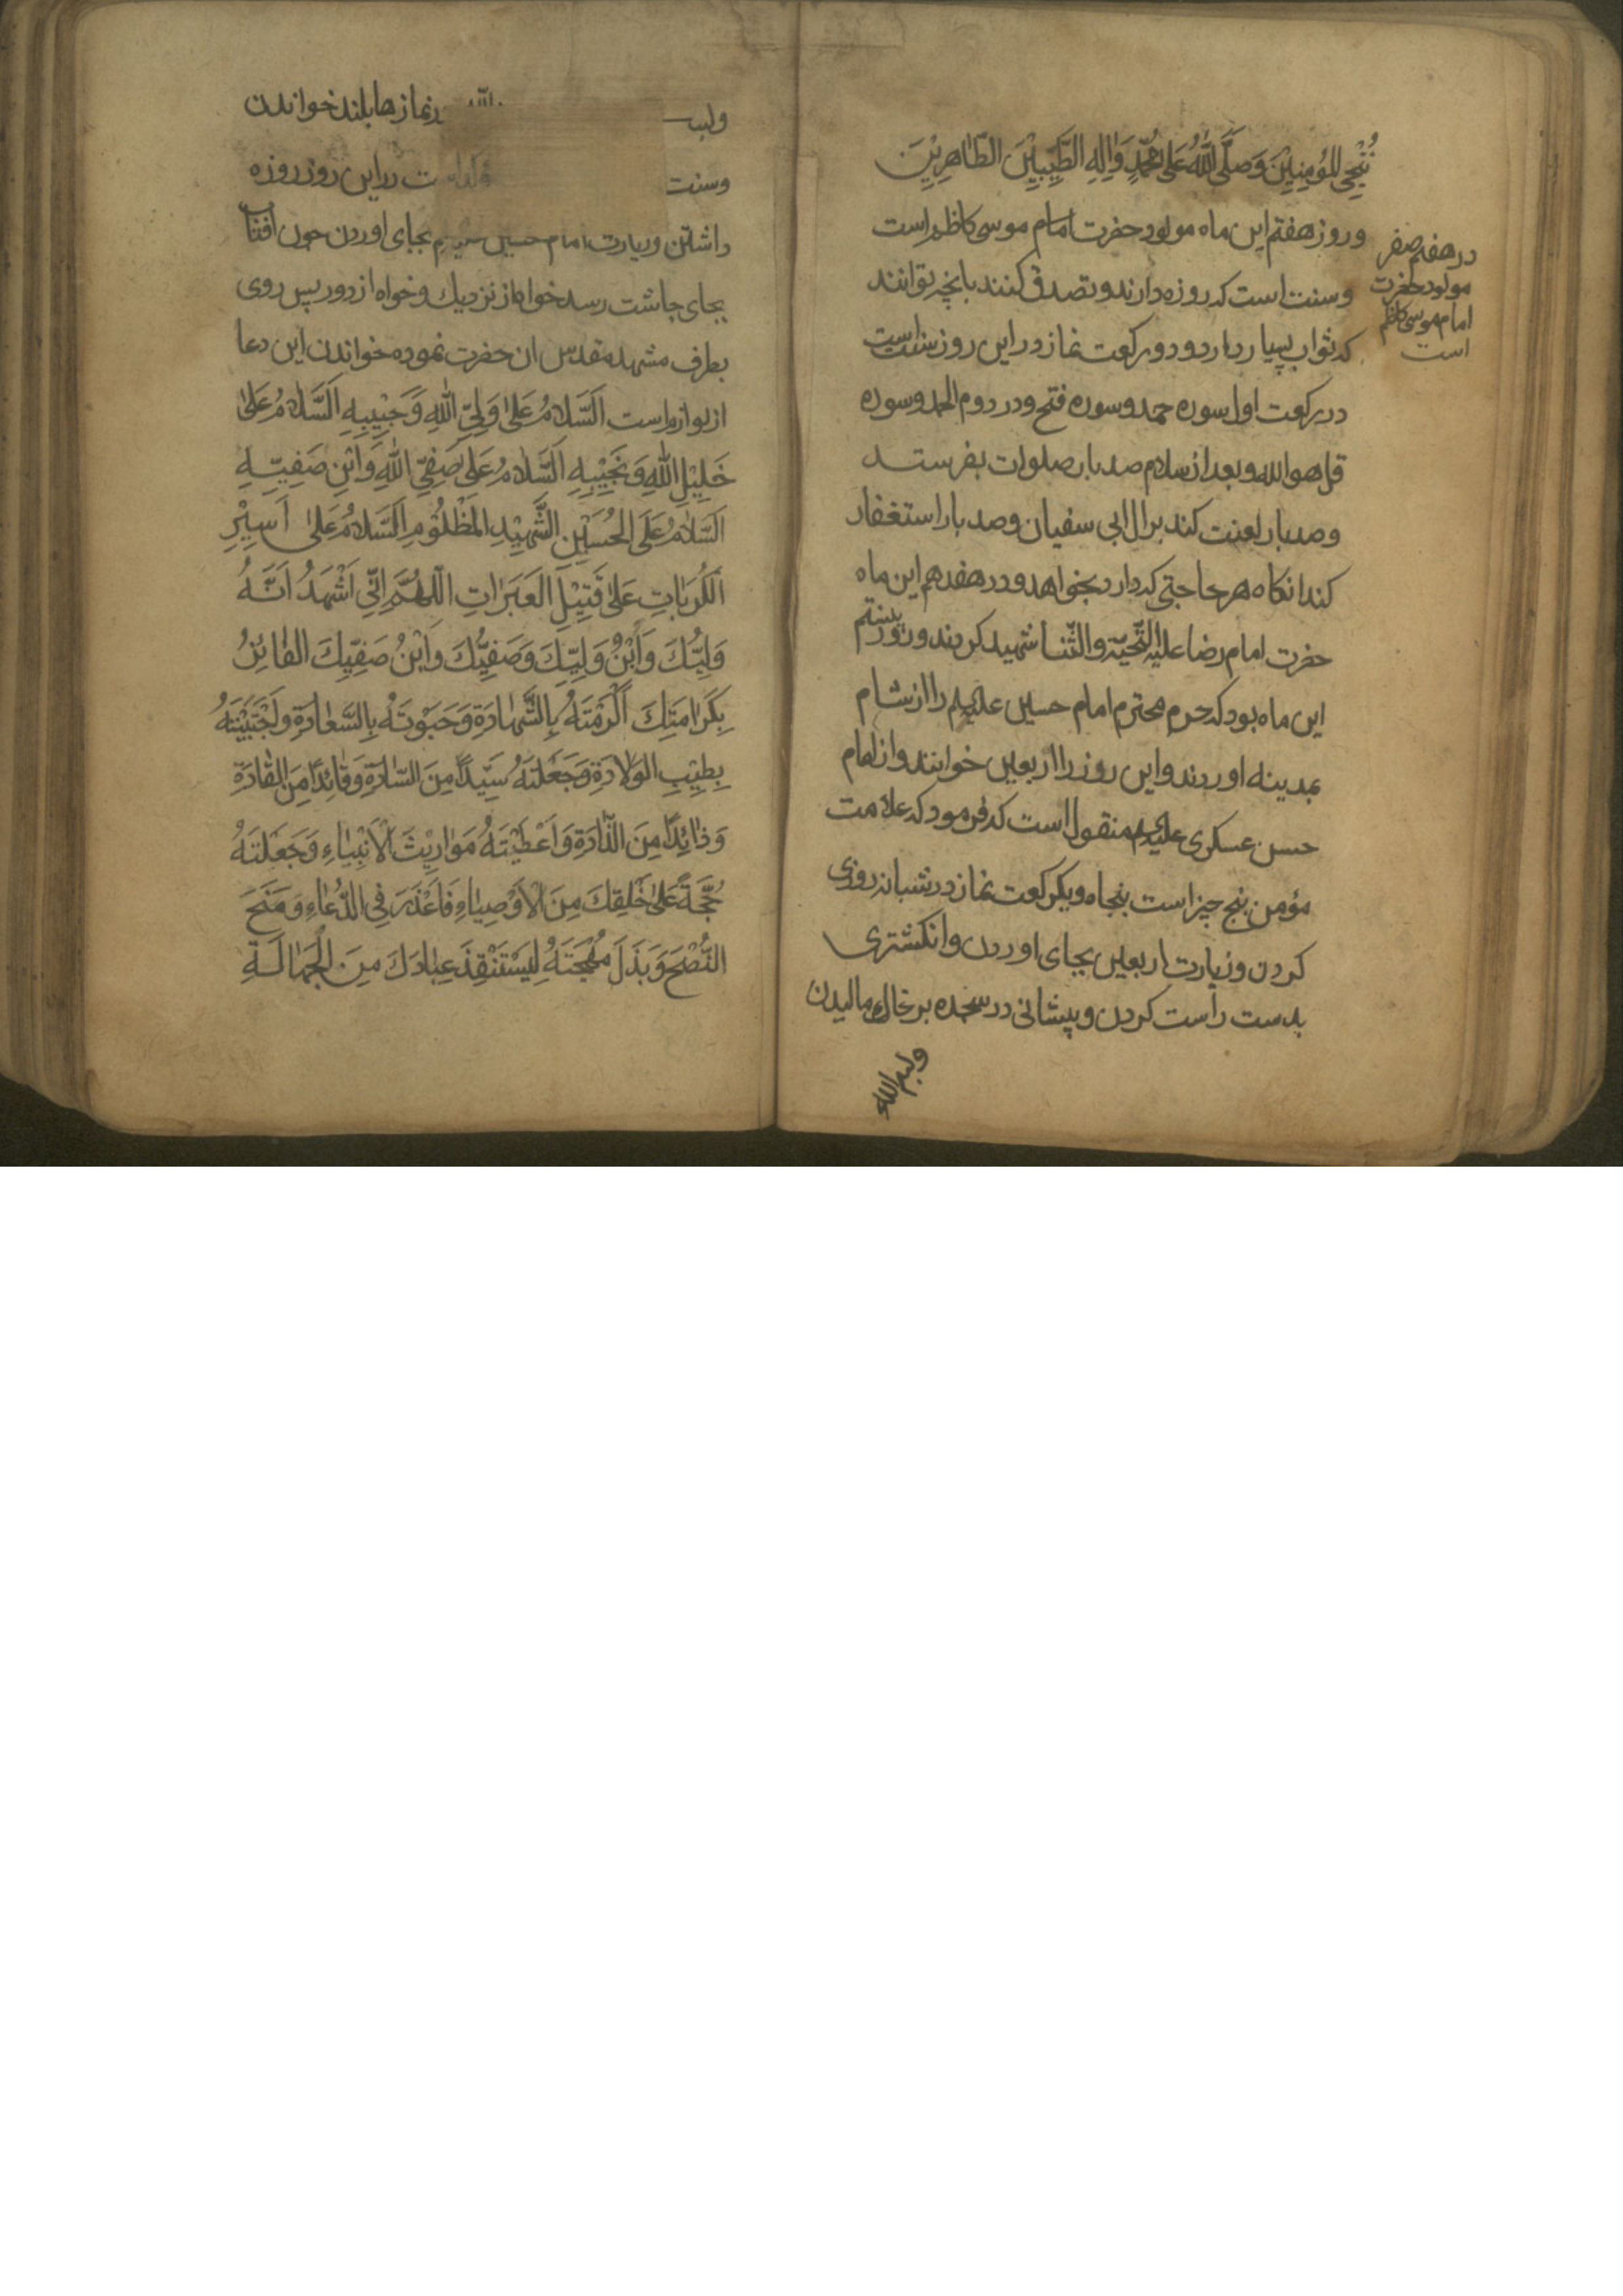 نُنْجِي المُؤمِنِيْنَ وَصَلَّى اللهُ عَلَى مُحَمَّدٍ وَالِهِ الطَّيِّبِيْنَ الطَّاهِرِيْنَ
وروز هفتم این ماه مولود حضرت امام موسی کاظم است
وسنت است که روزه دارند و تصدق کنند بانچه توانند
که ثواب بسیار دارد و دو رکعت نماز در این روز سنت است
در رکعت اول سوره حمد و سوره فتح و در دوم الحمد و سوره
قل هو الله و بعد از سلام صد بار صلوات بفرستد
و صد بار لعنت کند بر ال ابی سفیان و صد بار استغفار
کند انکاه هر حاجتی که دارد بخواهد و در هفدهم این ماه
حضرت امام رضا علیه التّحیّة والثّنا شهید کردند و روز بیستم
این ماه بود که حرم محترم امام حسین علیهم را از شام
بمدینه اوردند و این روز را اربعین خوانند و از امام
حسن عسکری علیه منقول است که فرمود که علامت
مؤمن پنج چیز است پنجاه و یکرکعت نماز در شبانه روزی
کردن و زیارت اربعین بجای اوردن و انکشتری
بدست راست کردن و پیشانی در سجده بر خاک مالیدن
وبسم الله
در هفتم صفر
مولود حضرت
امام موسی کاظم
است
نمازها بلند خواندن
وسنت در این روز روزه
داشتن و زیارت امام حسین بجای اوردن چون افتاب
بجای چاشت رسد خواه از نزدیك و خواه از دور پس روی
بطرف مشهد مقدس ان حضرت نموده خواندن این دعا
از لوازم است اَلسَّلَامُ عَلىٰ وَلِيِّ اللهِ وَحَبِيْبِهِ اَلسَّلَامُ عَلىٰ
خَلِيْلِ اللهِ وَنَجِيْبِهِ اَلسَّلَامُ عَلىٰ صَفِيِّ اللهِ وَابْنِ صَفِيِّهِ
اَلسَّلَامُ عَلَى الحُسَيْنِ الشَّهِيْدِ المَظْلُوْمِ اَلسَّلَامُ عَلىٰ اَسِيْرِ
الْكُرُبَاتِ عَلىٰ قَتِيْلِ العَبَرَاتِ اَللّٰهُمَّ اِنِّي اَشْهَدُ اَنَّهُ
وَلِيُّكَ وَابْنُ وَلِيِّكَ وَصَفِيُّكَ وَابْنُ صَفِيِّكَ الفَائِزُ
بِكَرَامَتِكَ اَكْرَمْتَهُ بِالشَّهَادَةِ وَحَبَوْتَهُ بِالسَّعَادَةِ وَاجْتَبَيْتَهُ
بِطِيْبِ الوَلَادَةِ وَجَعَلْتَهُ سَيِّدًا مِنَ السَّادَةِ وَقَائِدًا مِنَ القَادَةِ
وَذَائِدًا مِنَ الذَّادَةِ وَاَعْطَيْتَهُ مَوَارِيْثَ الْاَنْبِيَاءِ وَجَعَلْتَهُ
حُجَّةً عَلىٰ خَلْقِكَ مِنَ الْاَوْصِيَاءِ فَاَعْذَرَ فِي الدُّعَاءِ وَمَنَحَ
النُّصْحَ وَبَذَلَ مُهْجَتَهُ لِيَسْتَنْقِذَ عِبَادَكَ مِنَ الْجَهَالَةِ